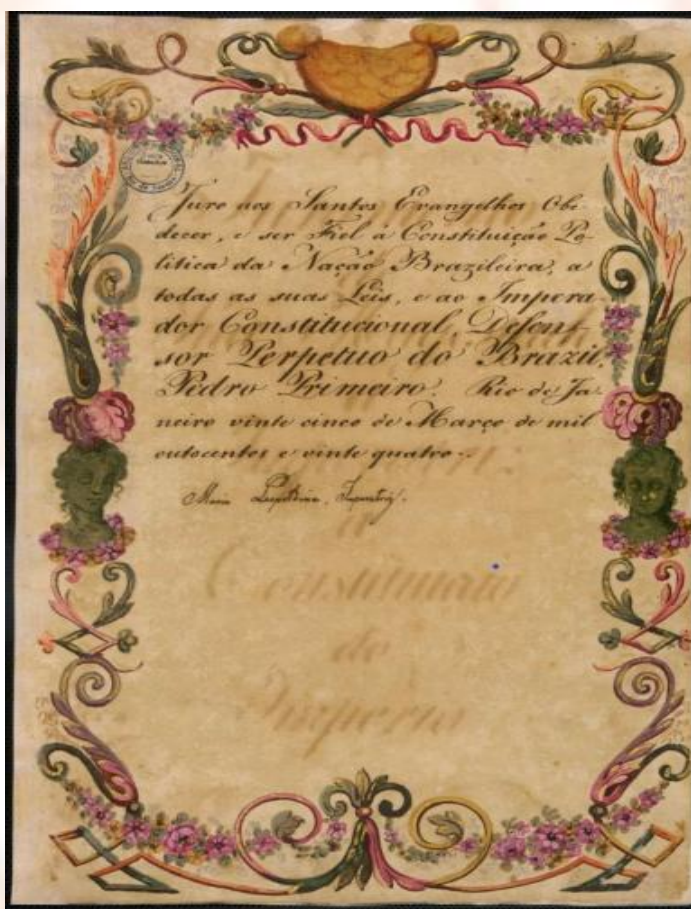 Juro aos Santos Evangelhos Obe-
decer, e ser Fiel á Constituição Po-
litica da Nação Brazileira, a
todas as suas Leis, e ao Impera-
dor Constitucional, Defen-
sor Perpetuo do Brazil,
Pedro Primeiro. Rio de Ja-
neiro vinte cinco de Março de mil
outocentos e vinte quatro.
Maria Leopoldina, Imperatriz.
Constituição
do
Imperio